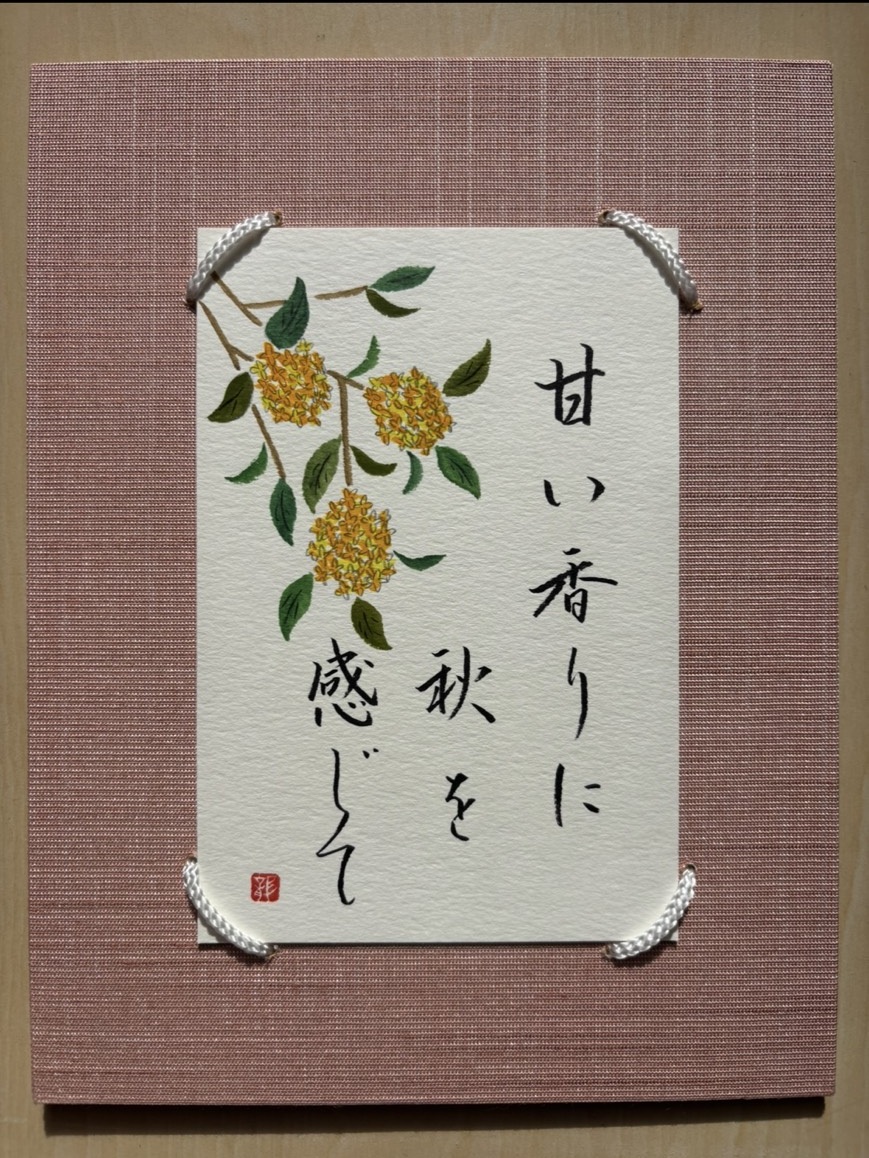 甘い香りに
秋を
感じて